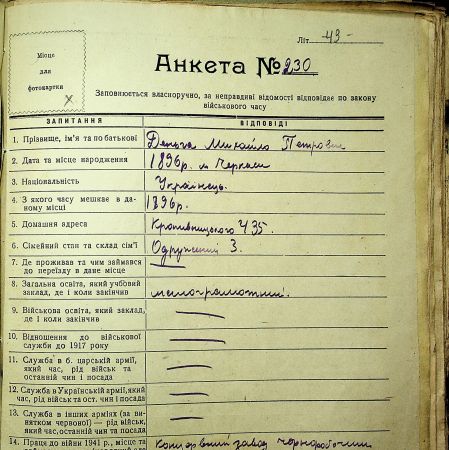 Літ -49-
Місце
для
фотокартки
Анкета № 230
Заповнюється власноручно, за неправдиві відомості відповідає по закону
військового часу
ЗАПИТАННЯ ВІДПОВІДІ
1. Прізвище, ім'я та по батькові Деньга Михайло Петрович
2. Дата та місце народження 1896р. м Черкаси
3. Національність Українець.
4. З якого часу мешкає в да-
ному місці 1896р.
5. Домашня адреса Кропивницького 435.
6. Сімейний стан та склад сім'ї Одружений 3.
7. Де проживав та чим займався
до переїзду в дане місце —
8. Загальна освіта, який учбовий
заклад, де і коли закінчив малограмотний.
9. Військова освіта, який заклад,
де і коли закінчив —
10. Відношення до військової
служби до 1917 року —
11. Служба в б. царській армії,
який час, рід військ та
останній чин і посада —
12. Служба в Українській армії, який
час, рід військ та ост. чин і посада —
13. Служба в інших арміях (за ви-
нятком червоної) — рід військ,
який час, останній чин та посада —
14. Праця до війни 1941 р., місце та Концервний завод чорноробочим